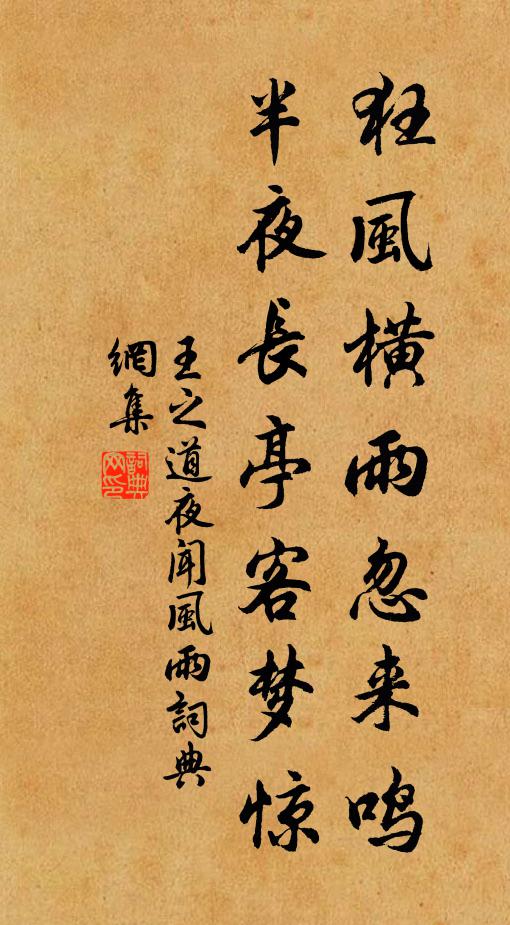 狂風橫雨忽来鸣
半夜長亭客梦惊
王之道夜闻風雨詞典
網集
詞典
网印